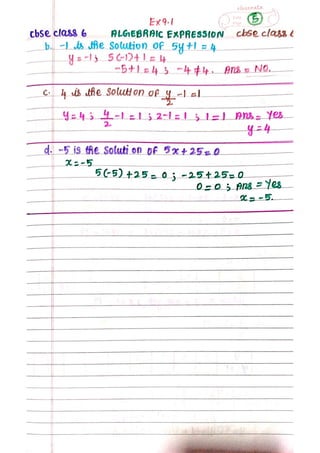 classmate
Ex 9.1
5
cbse class 6 ALGEBRAIC EXPRESSION cbse class 6
b. -1 is the solution of 5y+1 = 4
y = -1 ; 5(-1)+1 = 4
-5+1 = 4 ; -4 ≠ 4. Ans = NO.
c. 4 is the solution of y/2 -1 = 1
y = 4 ; 4/2 -1 = 1 ; 2-1 = 1 ; 1 = 1 Ans = Yes
y = 4
d. -5 is the solution of 5x + 25 = 0
x = -5
5(-5) + 25 = 0 ; -25 + 25 = 0
0 = 0 ; Ans = Yes
x = -5.